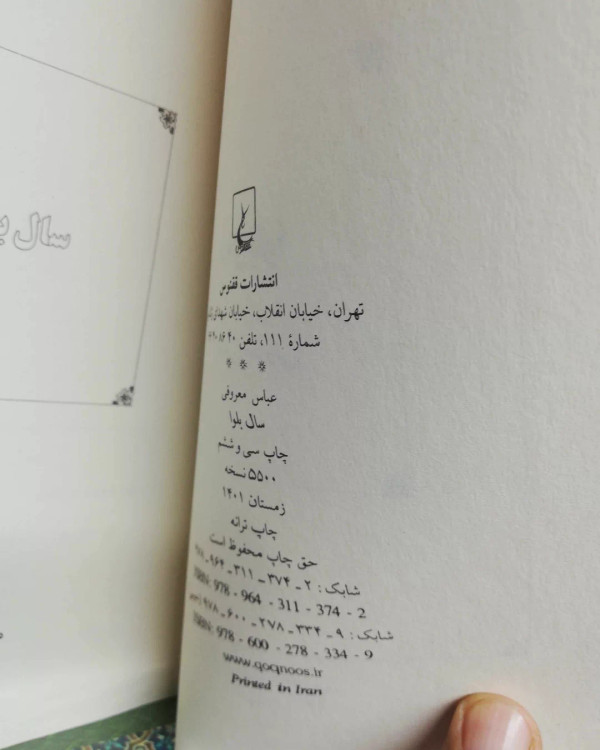 سال
انتشارات ققنوس
تهران، خیابان انقلاب، خیابان شهدای
شمارهٔ ۱۱۱، تلفن ۴۰ ۸۶
* * *
عباس معروفی
سال بلوا
چاپ سی و ششم
۵۵۰۰ نسخه
زمستان ۱۴۰۱
چاپ ترانه
حق چاپ محفوظ است
شابک: ۲ ـ ۳۷۴ ـ ۳۱۱ ـ ۹۶۴ ـ
ISBN: 978 - 964 - 311 - 374 - 2
شابک: ۹ ـ ۳۳۴ ـ ۲۷۸ ـ ۶۰۰ ـ ۹۷۸
ISBN: 978 - 600 - 278 - 334 - 9
www.qoqnoos.ir
Printed in Iran